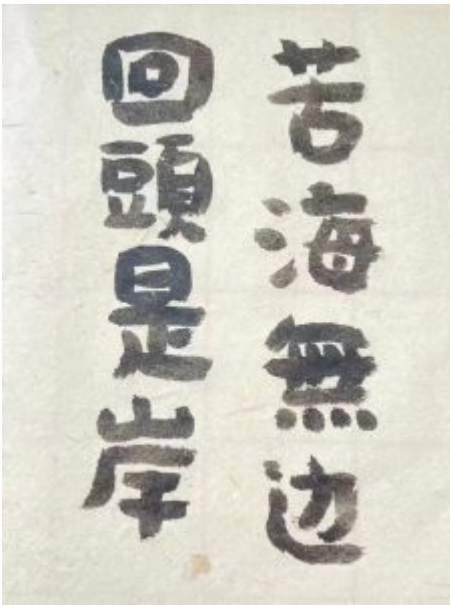 苦海無边
回頭是岸